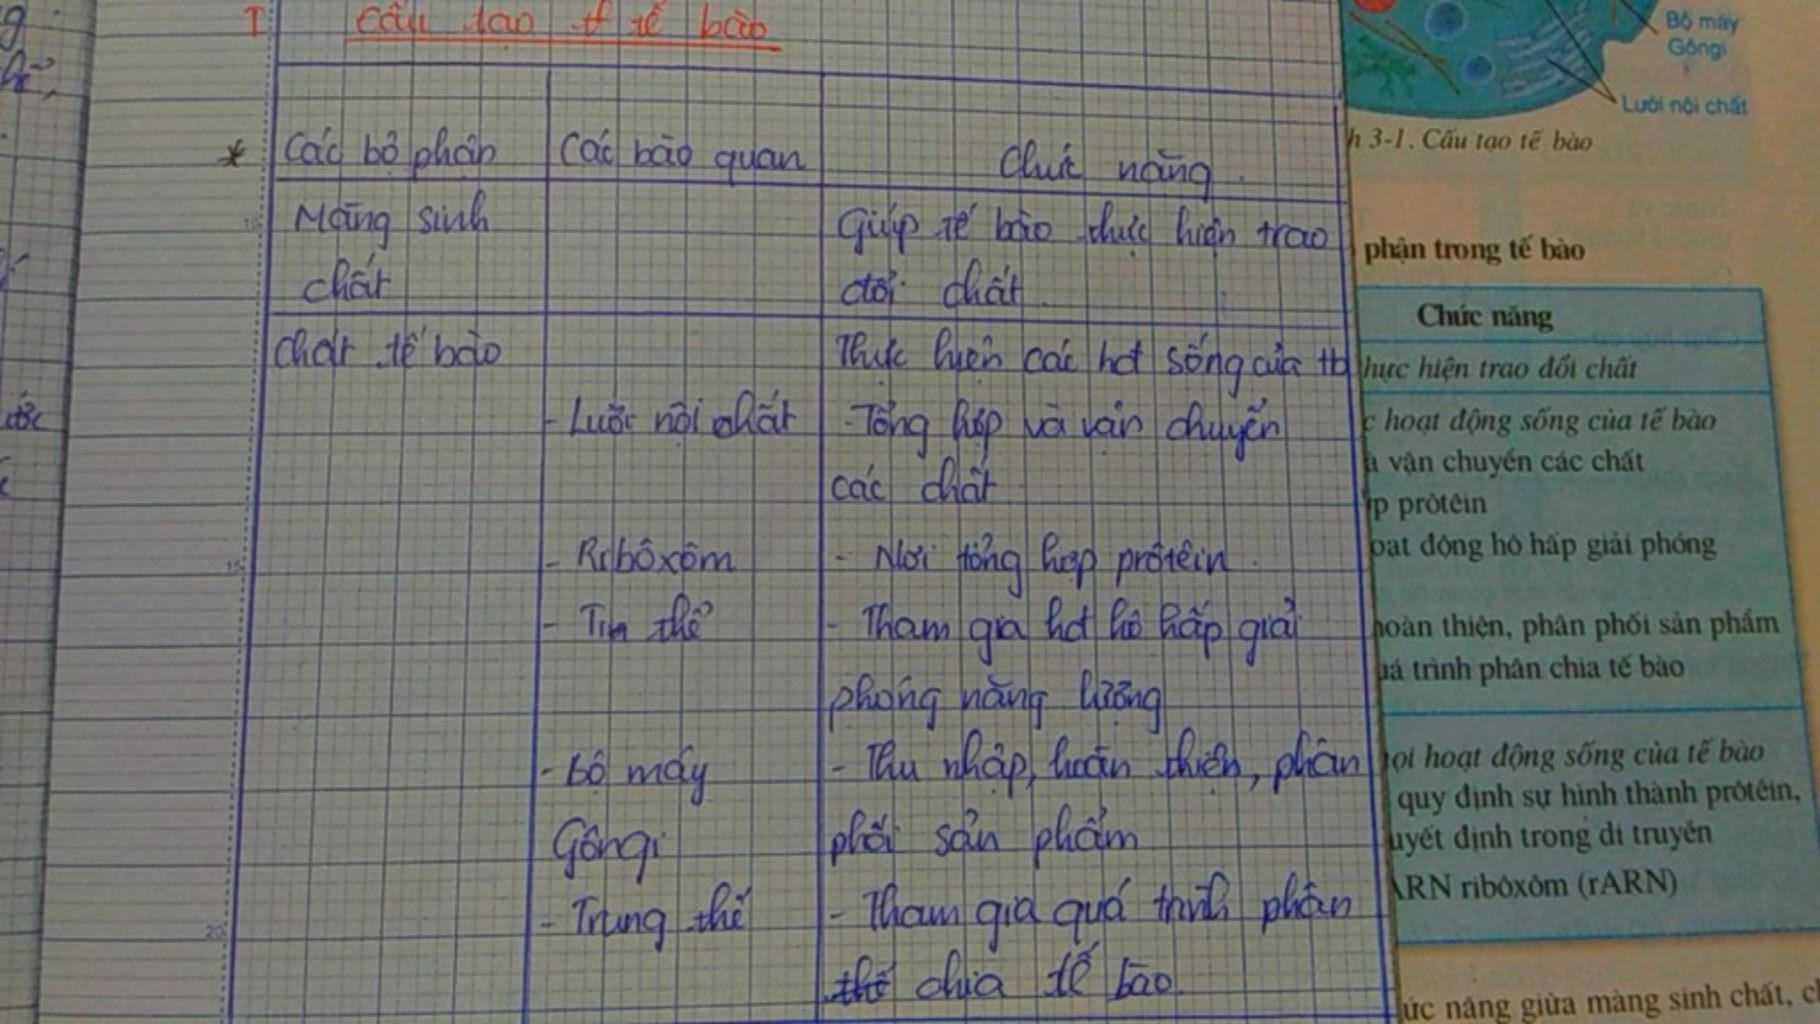 I cấu tạo tế bào
* Các bộ phận Các bào quan Chức năng.
Màng sinh Giúp tế bào thực hiện trao
chất đổi chất.
chất tế bào Thực hiện các hđ sống của tb
- Lưới nội chất - Tổng hợp và vận chuyển
các chất
- Ribôxôm - Nơi tổng hợp prôtêin.
- Ti thể - Tham gia hđ hô hấp giải
phóng năng lượng
- bộ máy - Thu nhập, hoàn thiện, phân
Gôngi phối sản phẩm
- Trung thể - Tham gia quá trình phân
chia tế bào.
Bộ máy
Gôngi
Lưới nội chất
h 3-1. Cấu tạo tế bào
phận trong tế bào
Chức năng
hực hiện trao đổi chất
c hoạt động sống của tế bào
à vận chuyển các chất
p prôtêin
oạt động hô hấp giải phóng
hoàn thiện, phân phối sản phẩm
uá trình phân chia tế bào
ọi hoạt động sống của tế bào
quy định sự hình thành prôtêin,
uyết định trong di truyền
ARN ribôxôm (rARN)
ức năng giữa màng sinh chất, ch